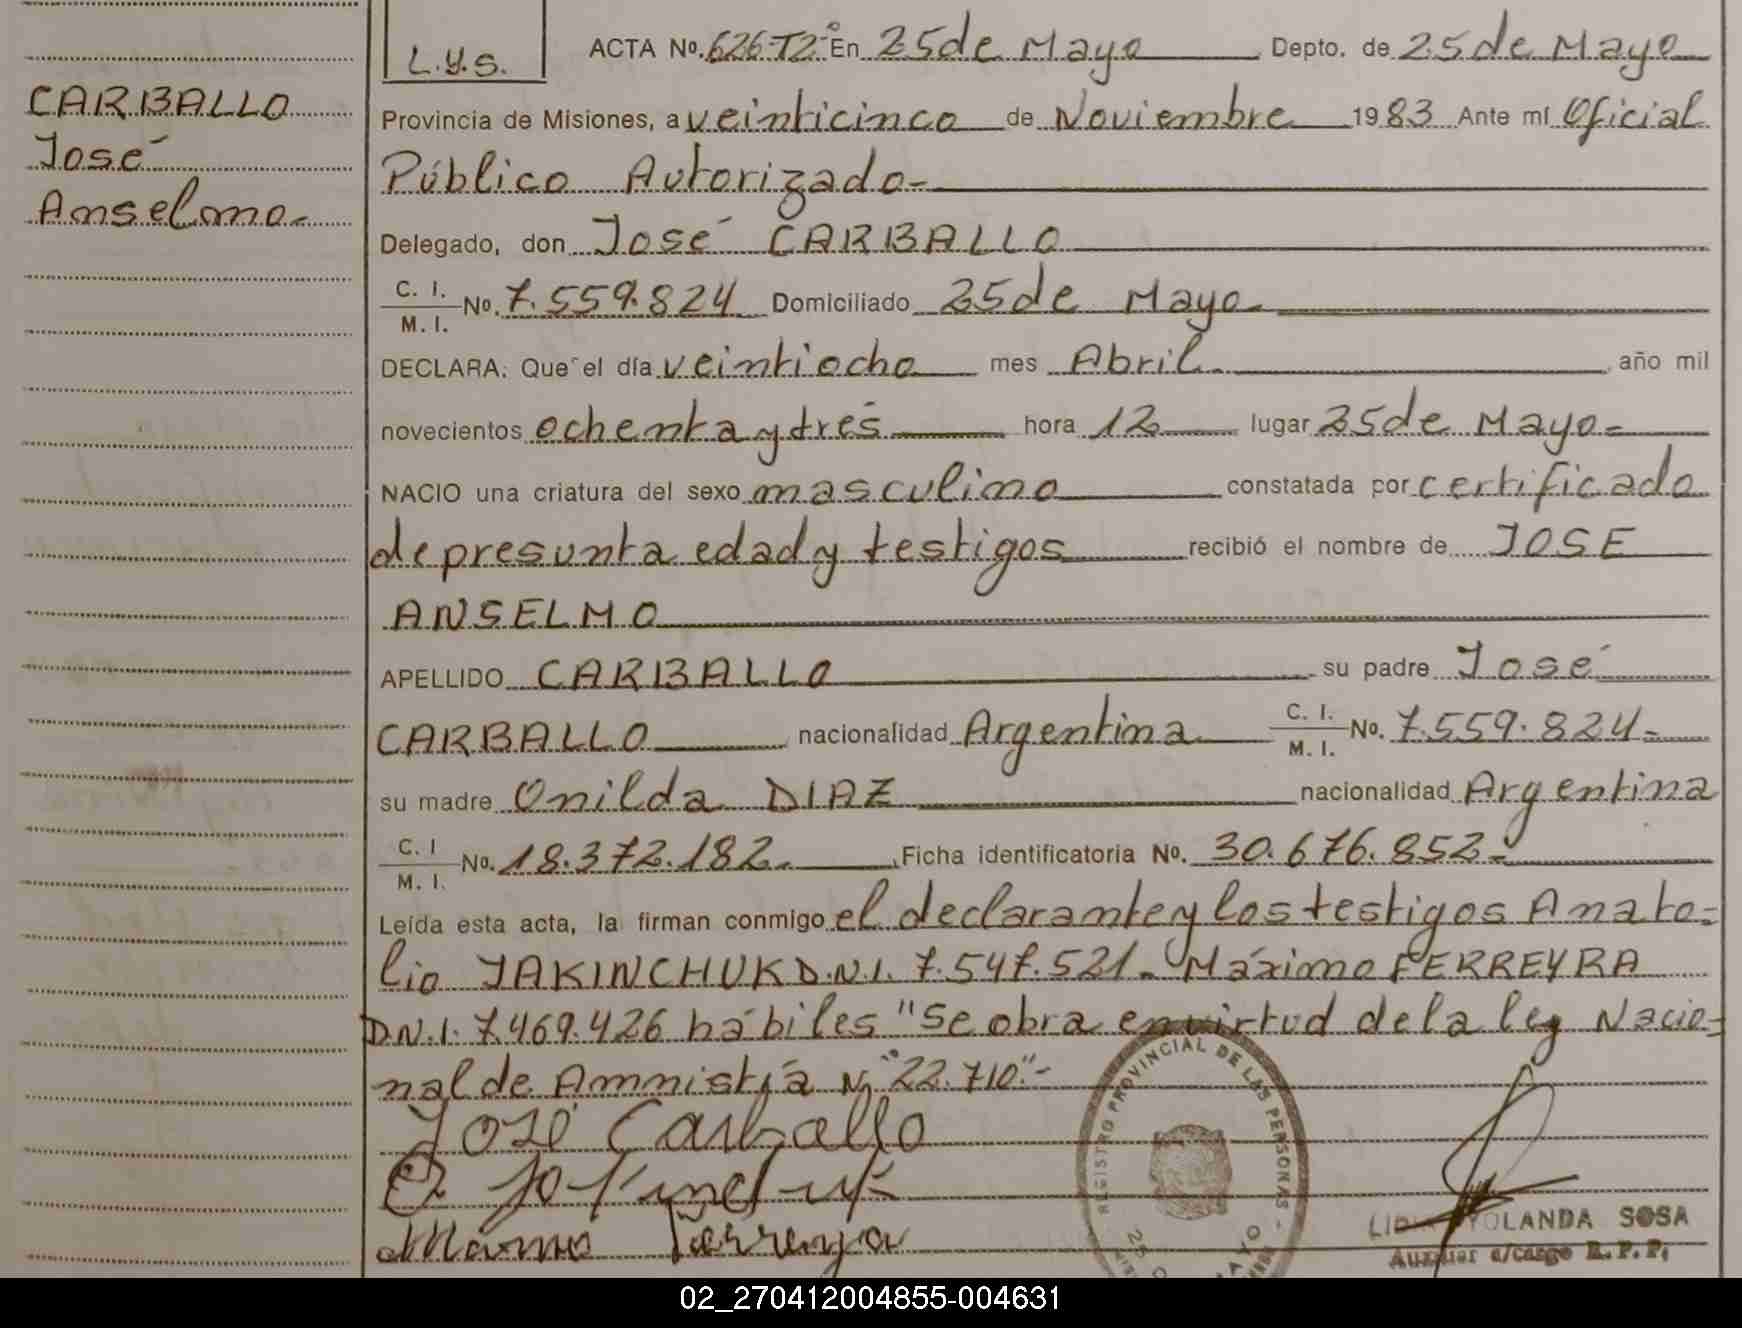 L.Y.S.
CARBALLO
José
Anselmo.-
ACTA No. 626-T2-° En 25 de Mayo Depto. de 25 de Mayo
Provincia de Misiones, a veinticinco de Noviembre 1983 Ante mí Oficial
Público Autorizado-
Delegado, don José CARBALLO
C. I. M. I. No. 7.559.824 Domiciliado 25 de Mayo-
DECLARA: Que el día veintiocho mes Abril.- año mil
novecientos ochenta y tres hora 12 lugar 25 de Mayo-
NACIO una criatura del sexo masculino constatada por certificado
de presunta edad y testigos recibió el nombre de JOSE
ANSELMO
APELLIDO CARBALLO su padre José
CARBALLO nacionalidad Argentina C. I. M. I. No. 7.559.824-
su madre Onilda DIAZ nacionalidad Argentina
C. I M. I. No. 18.372.182.- Ficha identificatoria No. 30.676.852-
Leída esta acta, la firman conmigo el declarante y los testigos Anato=
lio JAKINCHUK D.N.I. 7.547.521.- Máximo FERREYRA
D.N.I. 7.469.426 hábiles "Se obra en virtud de la ley Nacio-
nal de Ammistía Nº "22.710"-
José Carballo
REGISTRO PROVINCIAL DE LAS PERSONAS -
YOLANDA SOSA
Auxiliar a/cargo R.P.P.
02_270412004855-004631